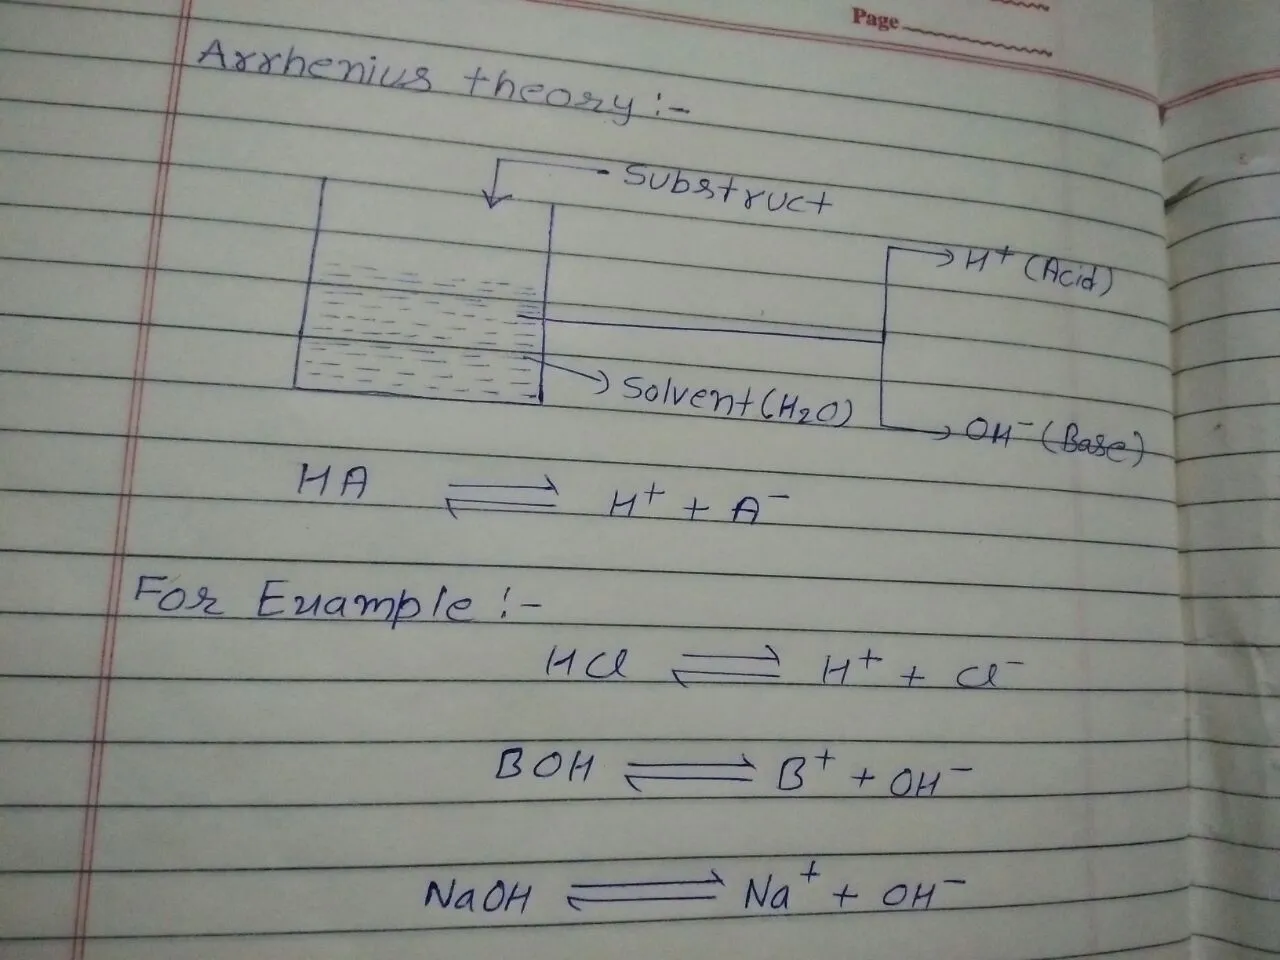 Page
Arrhenius theory :-
Substruct
H⁺ (Acid)
Solvent (H₂O)
OH⁻ (Base)
HA ⇌ H⁺ + A⁻
For Example :-
HCl ⇌ H⁺ + Cl⁻
BOH ⇌ B⁺ + OH⁻
NaOH ⇌ Na⁺ + OH⁻